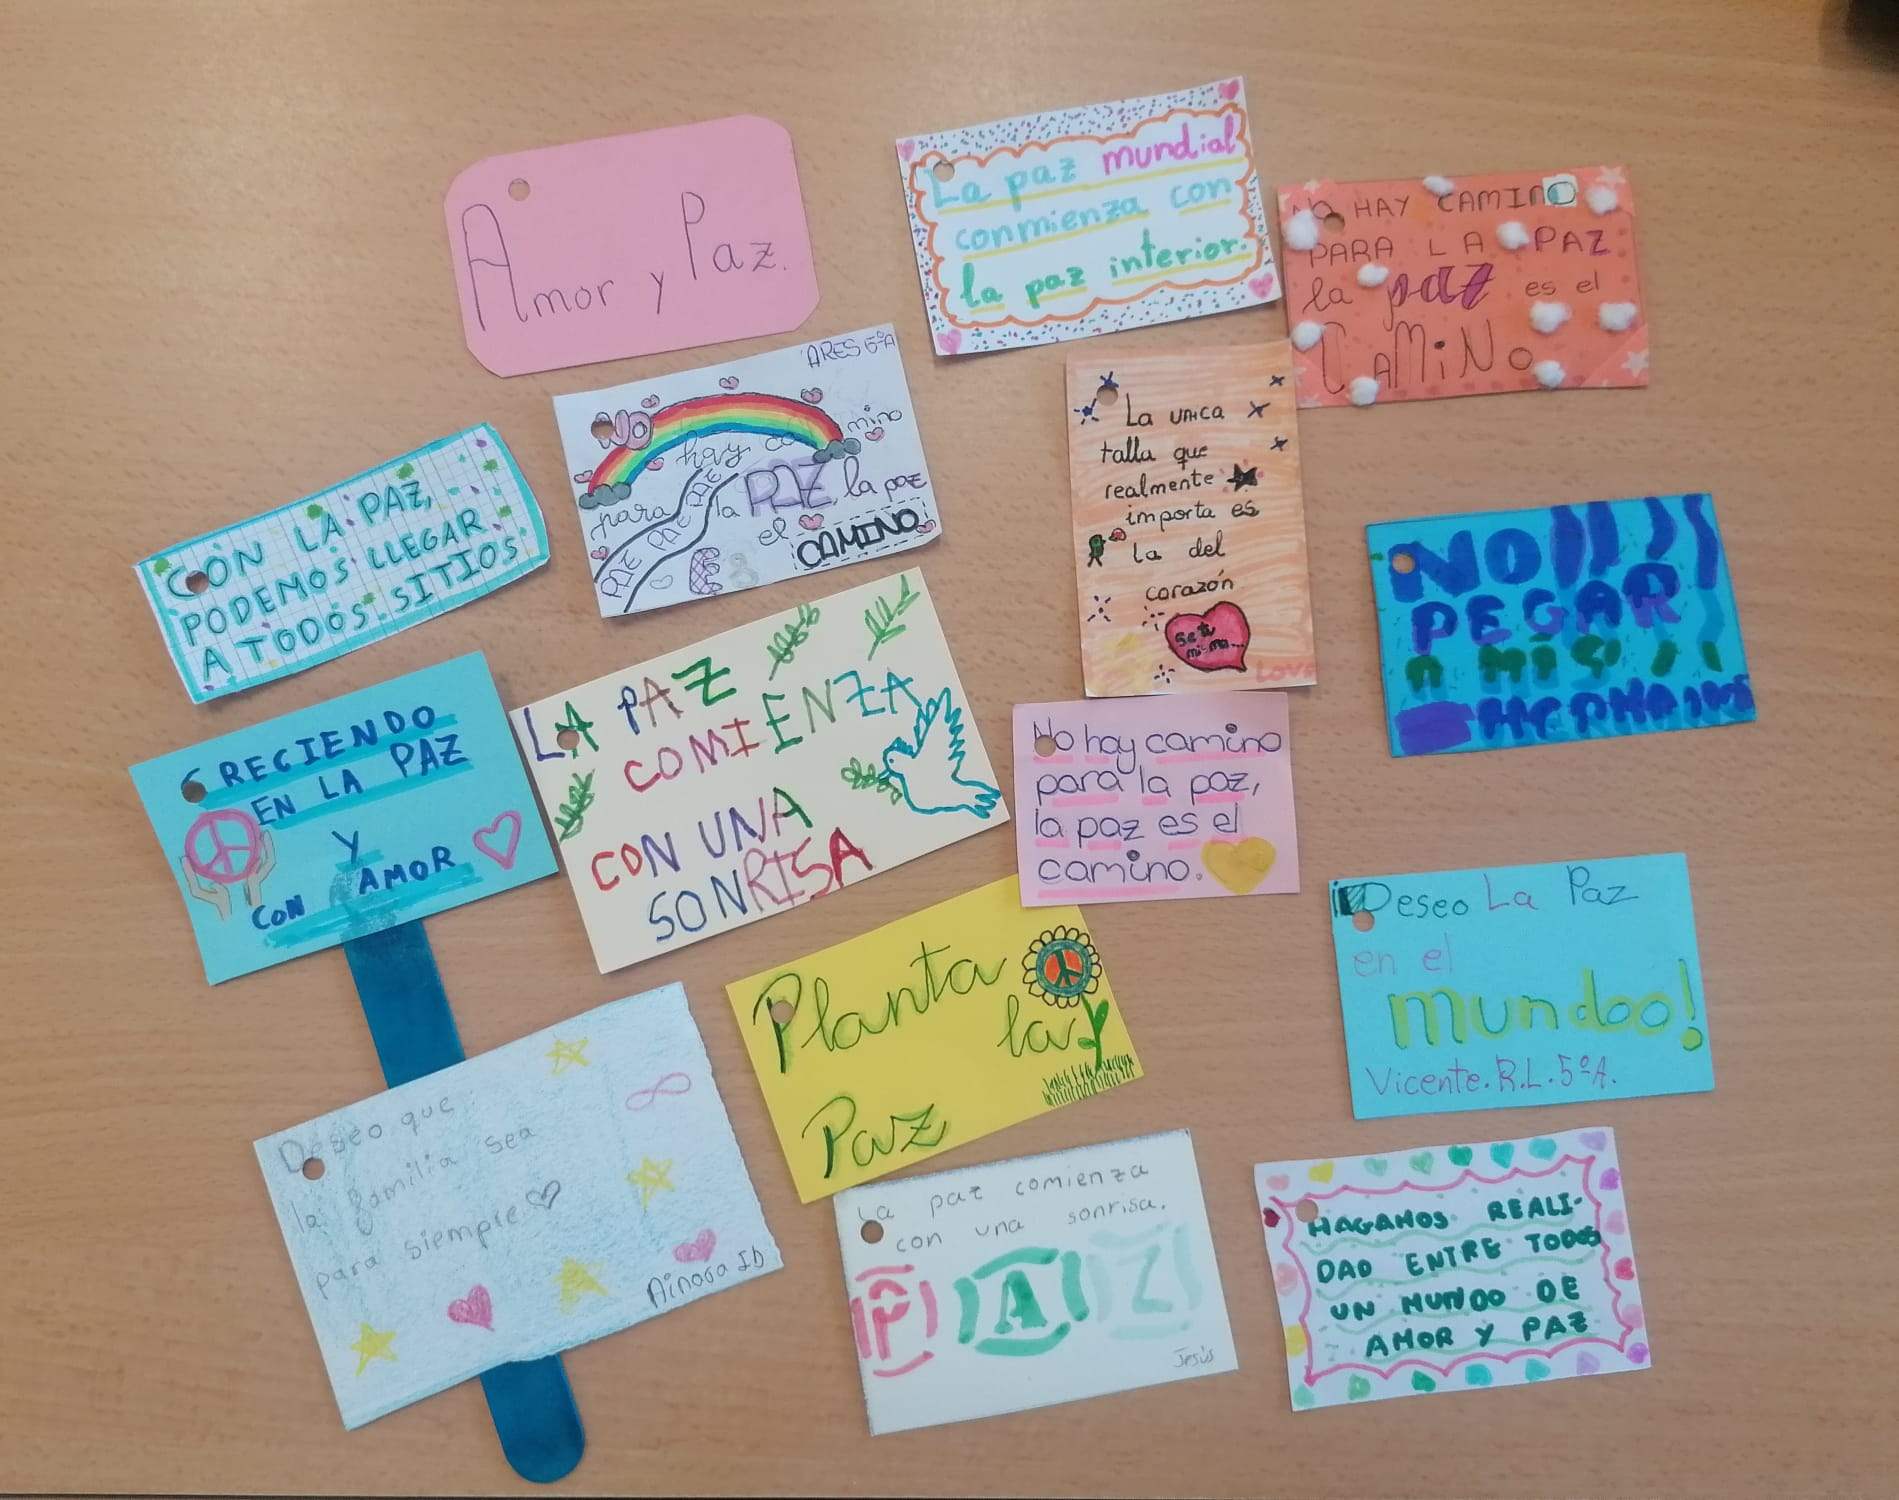 Amor y Paz.
La paz mundial
conmienza con
la paz interior.
No HAY CAMINO
PARA LA PAZ
la paz es el
CAMiNo
ARES 5ºA
NO
hay camino
para la PAZ, la paz
ES el CAMINO
PAZ PAZ PAZ
La unica
talla que
realmente
importa es
la del
corazón
Se tu
mi-ma...
LOVE
CON LA PAZ,
PODEMOS LLEGAR
A TODOS SITIOS
NO
PEGAR
A MIS
HERMANOS
CRECIENDO
EN LA PAZ
Y
CON AMOR
LA PAZ
COMIENZA
CON UNA
SONRISA
No hay camino
para la paz,
la paz es el
camino.
Planta
la
Paz
Deseo La Paz
en el
mundoo!
Vicente.R.L.5ºA.
Deseo que
la familia sea
para siempre
Ainoa ID
La paz comienza
con una sonrisa.
PAZ
Jesús
HAGAMOS REALI-
DAD ENTRE TODOS
UN MUNDO DE
AMOR Y PAZ